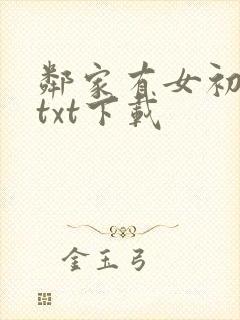 鄰家有女初
txt下載
金玉弓